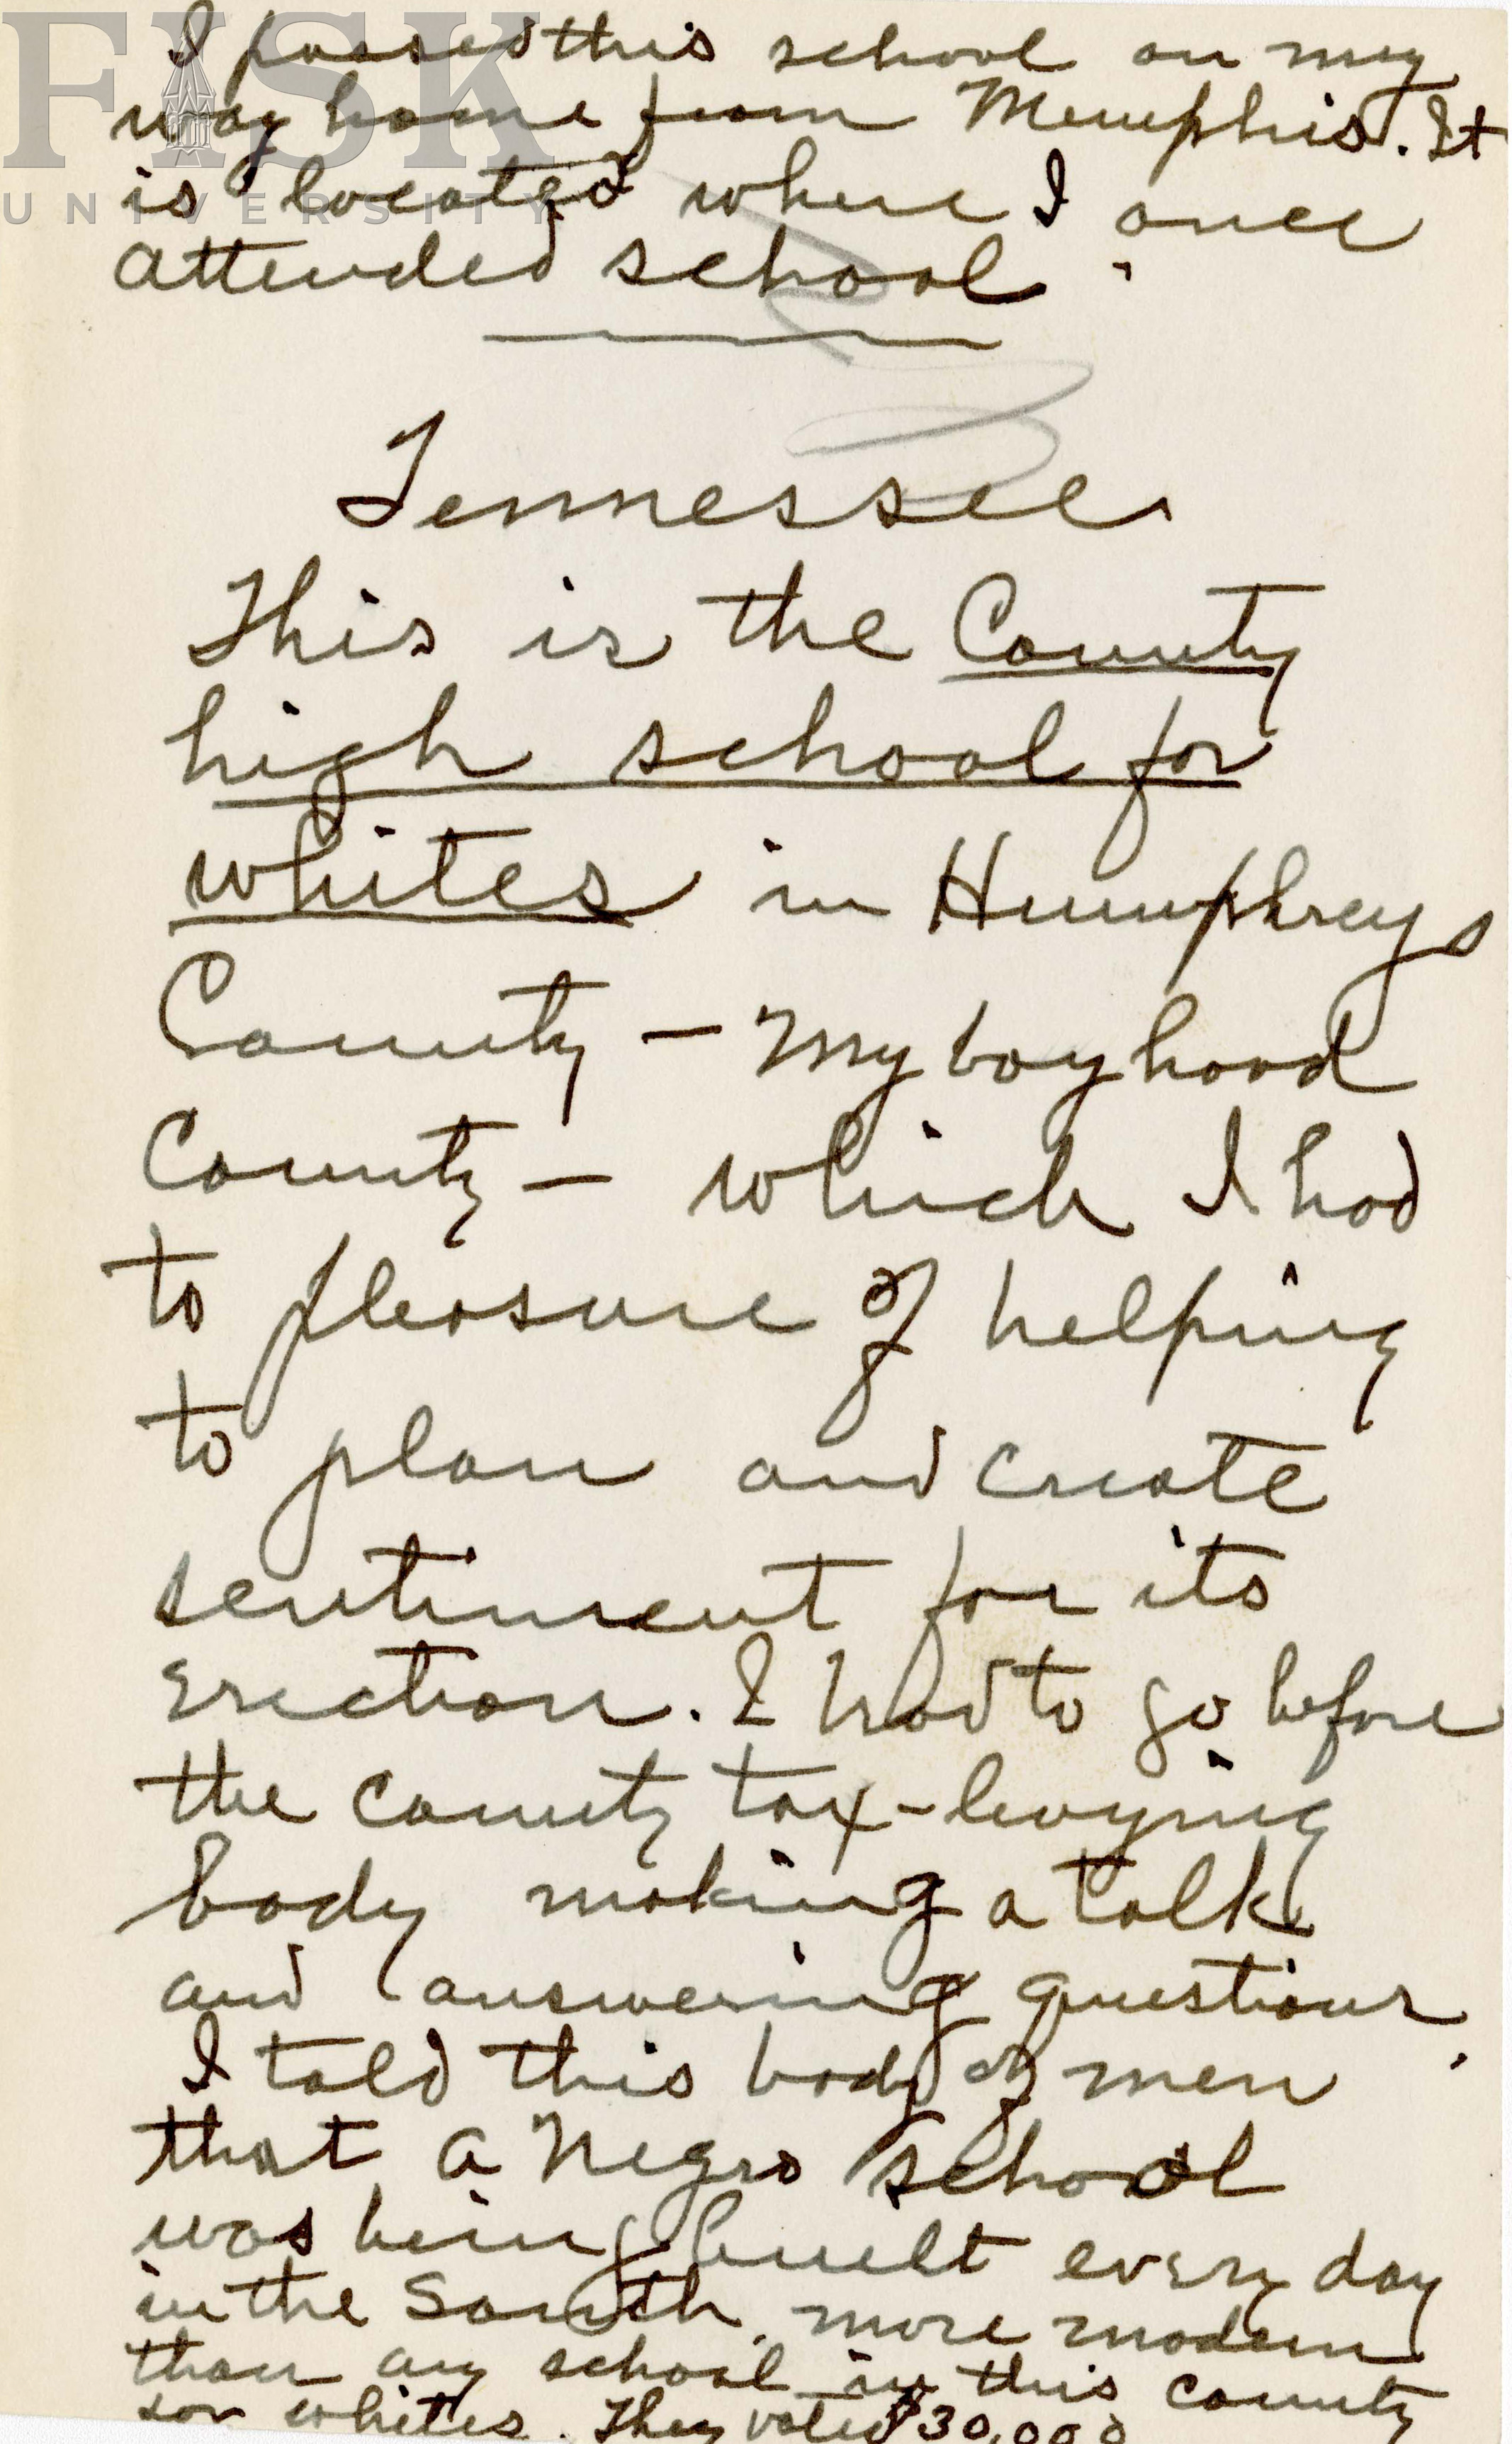 FISK
UNIVERSITY
I passed this school on my
way home from Memphis. It
is located where I once
attended school.
Tennessee.
This is the County
high school for
whites in Humphreys
County – my boyhood
County – which I had
to pleasure of helping
to plan and create
sentiment for its
erection. I had to go before
the county tax-levying
body making a talk
and answering questions.
I told this body of men
that a Negro school
was being built every day
in the South, more modern
than any school in this county
for whites. They voted $30,000